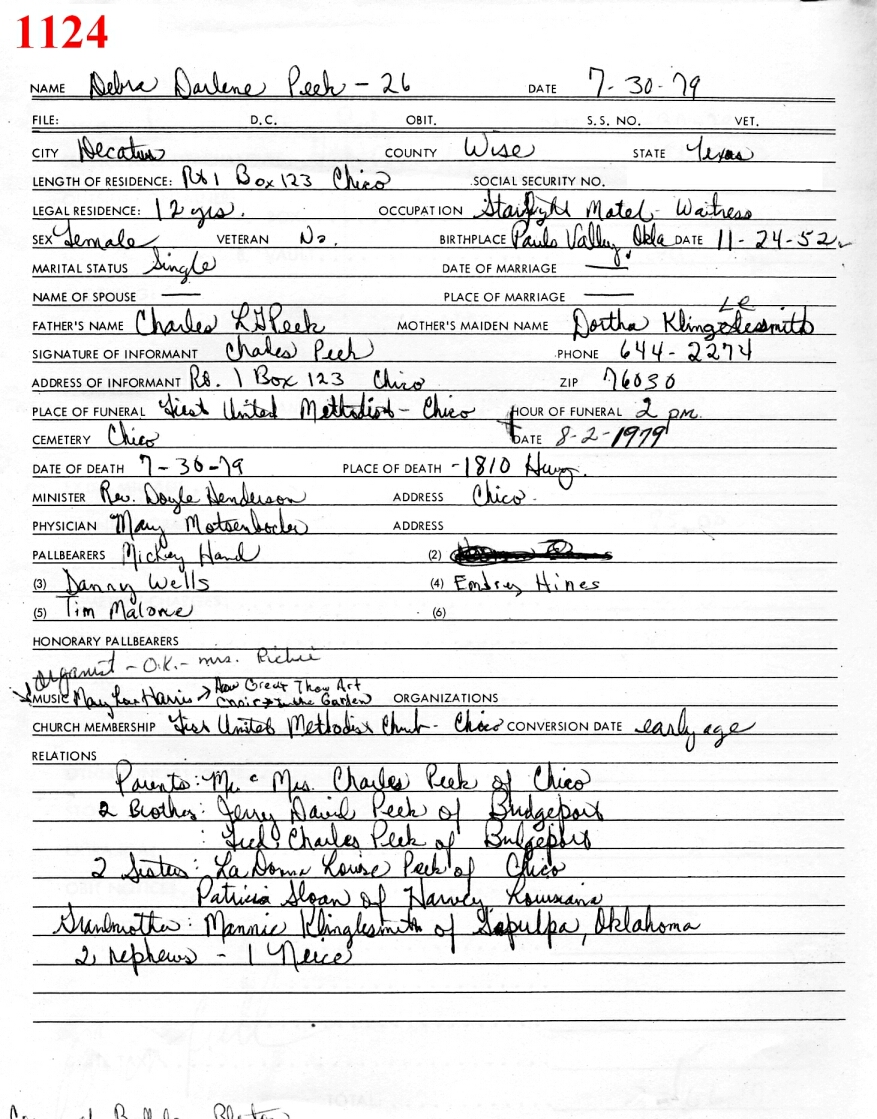 1124
NAME Debra Darlene Peek - 26 DATE 7-30-79
FILE: D.C. OBIT. S.S. NO. VET.
CITY Decatur COUNTY Wise STATE Texas
LENGTH OF RESIDENCE: Rt 1 Box 123 Chico SOCIAL SECURITY NO.
LEGAL RESIDENCE: 12 yrs. OCCUPATION Starlight Motel - Waitress
SEX Female VETERAN No. BIRTHPLACE Pauls Valley, Okla DATE 11-24-52
MARITAL STATUS Single DATE OF MARRIAGE —
NAME OF SPOUSE — PLACE OF MARRIAGE —
FATHER'S NAME Charles Peek MOTHER'S MAIDEN NAME Dortha
SIGNATURE OF INFORMANT Charles Peek PHONE 644-2274
ADDRESS OF INFORMANT Rt. 1 Box 123 Chico ZIP 76030
PLACE OF FUNERAL First United Methodist - Chico HOUR OF FUNERAL 2 pm.
CEMETERY Chico DATE 8-2-1979
DATE OF DEATH 7-30-79 PLACE OF DEATH - 1810 Hwy.
MINISTER Rev. Doyle Henderson ADDRESS Chico.
PHYSICIAN Mary Motsenbocker ADDRESS
PALLBEARERS Mickey Hand (2)
(3) Danny Wells (4) Hines
(5) Tim Malone (6)
HONORARY PALLBEARERS
Organist - O.K. - Mrs. Richie
How Great Thou Art
MUSIC Mary Lou Harris → Choir → In the Garden ORGANIZATIONS
CHURCH MEMBERSHIP First United Methodist Church - Chico CONVERSION DATE early age
RELATIONS
Parents: Mr. & Mrs. Charles Peek of Chico
2 Brothers: Jerry David Peek of Bridgeport
: Charles Peek of Bridgeport
2 Sisters: La Donna Louise Peek of Chico
Patricia Sloan of Harvey Louisiana
Grandmother: Mannie Klinglesmith of Sapulpa, Oklahoma
2 nephews - 1 Neice